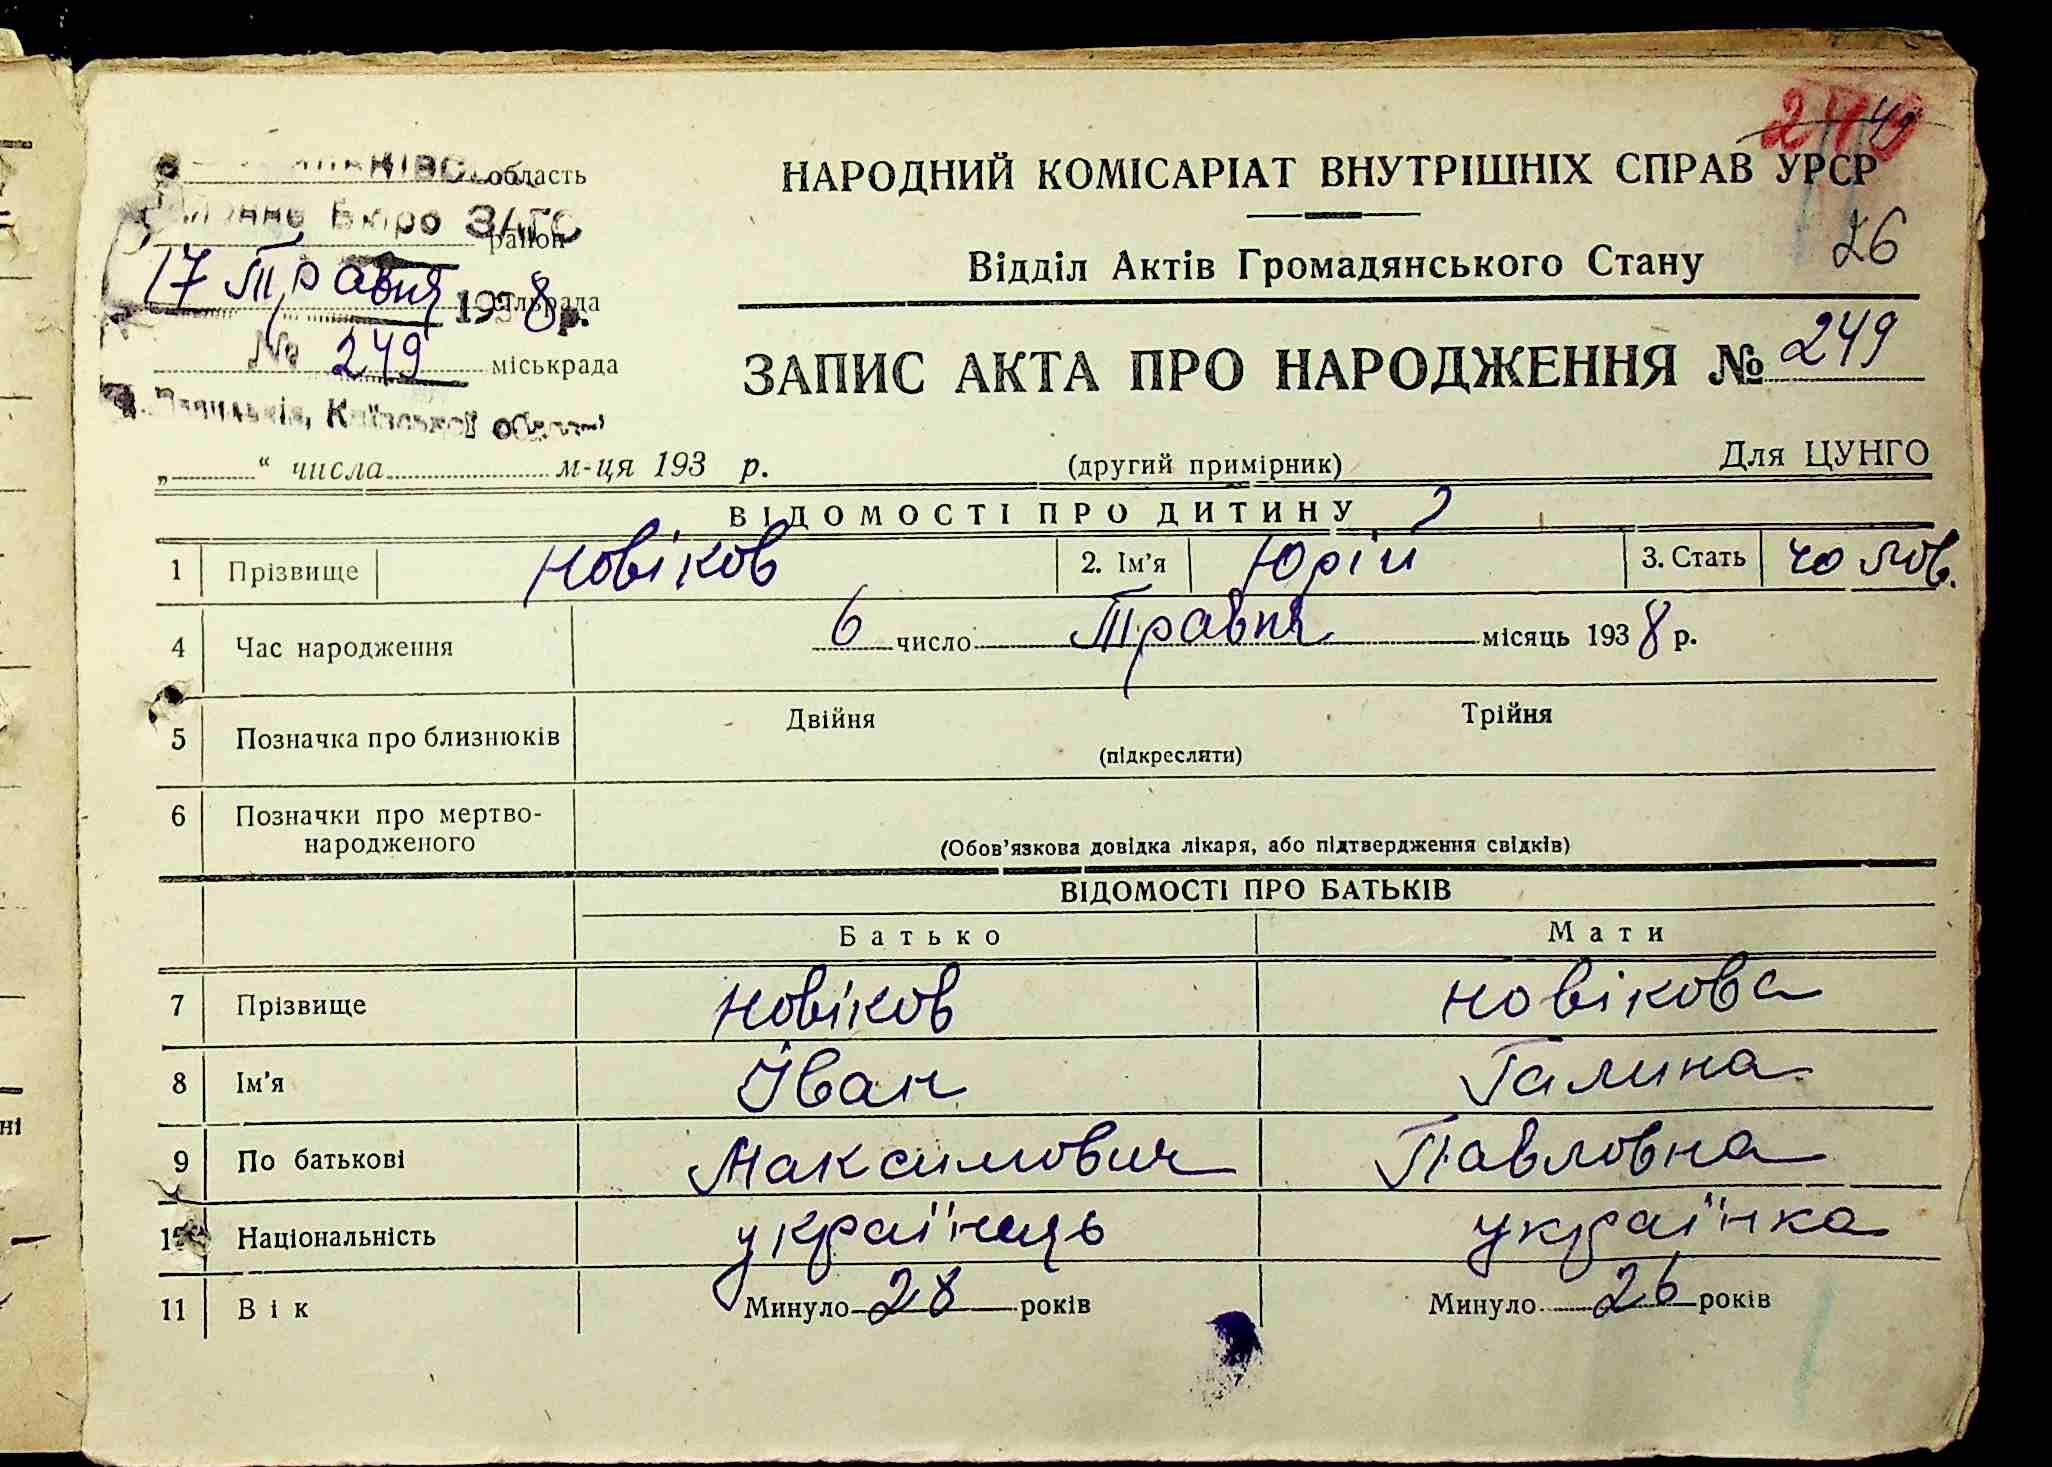 область
Бюро ЗАГС
район
17 Травня 1938 р.
сільрада
№ 249
міськрада
Київської
„ “ числа м-ця 193 р.
249
НАРОДНИЙ КОМІСАРІАТ ВНУТРІШНІХ СПРАВ УРСР
26
Відділ Актів Громадянського Стану
ЗАПИС АКТА ПРО НАРОДЖЕННЯ № 249
(другий примірник)
Для ЦУНГО
ВІДОМОСТІ ПРО ДИТИНУ
1 Прізвище Новіков 2. Ім’я Юрій 3. Стать чолов.
4 Час народження 6 число Травня місяць 1938 р.
5 Позначка про близнюків Двійня Трійня
(підкреслити)
6 Позначки про мертво-
народженого
(Обов’язкова довідка лікаря, або підтвердження свідків)
ВІДОМОСТІ ПРО БАТЬКІВ
Батько Мати
7 Прізвище Новіков Новікова
8 Ім’я Іван Галина
9 По батькові Максимович Павловна
10 Національність українець українка
11 Вік Минуло 28 років Минуло 26 років
ні